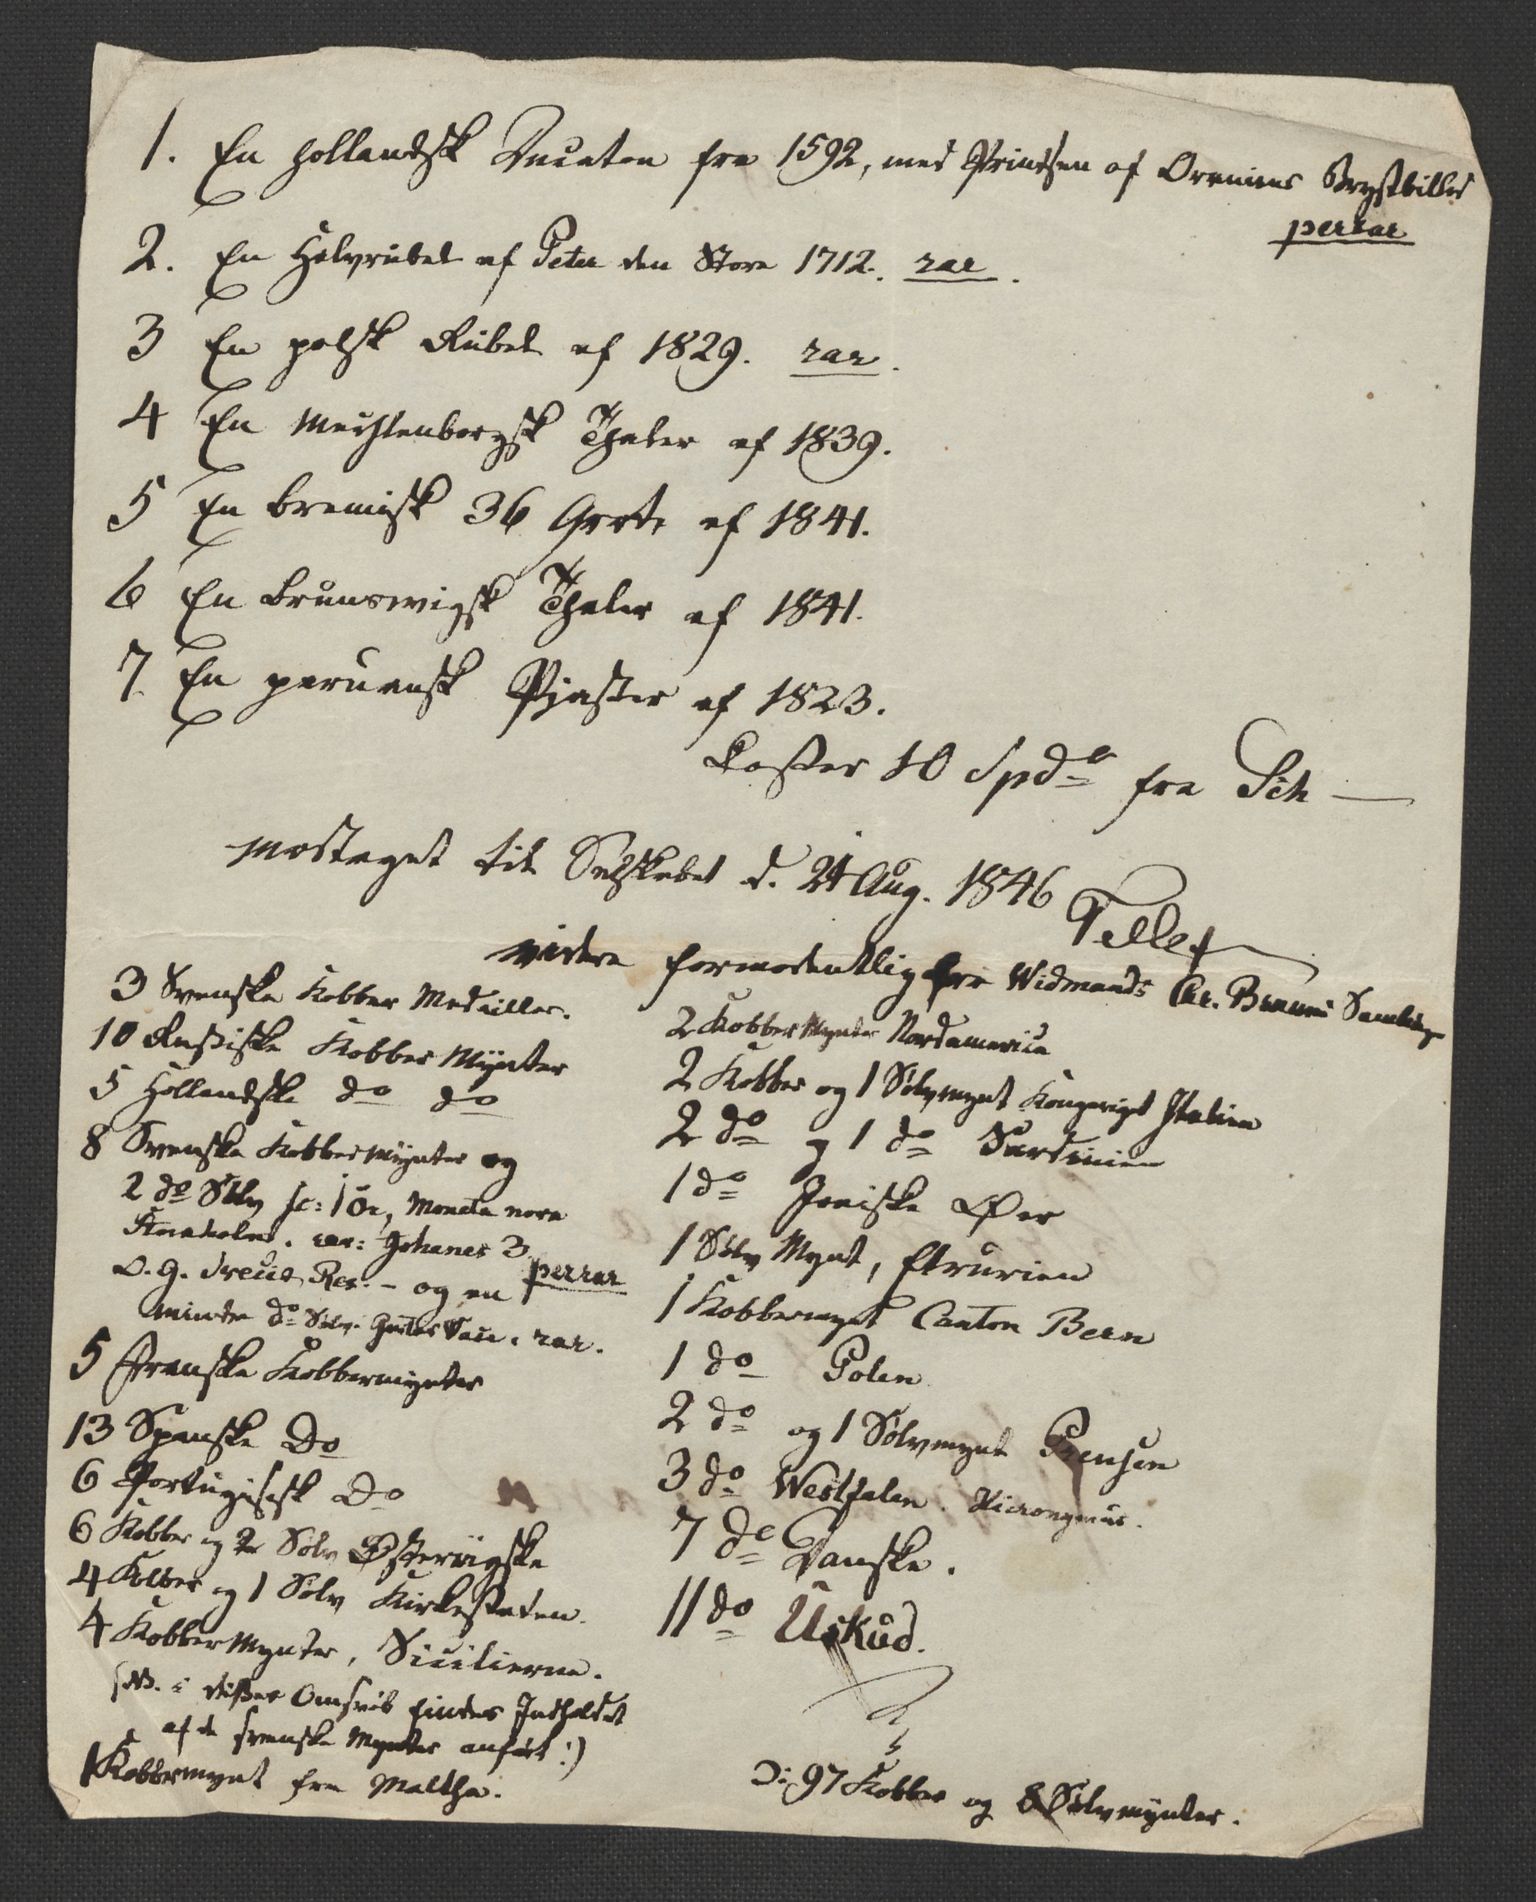 1. En hollandsk Ducaton fra 1592, med Prindsen af Oraniens Brystbilled
perrar
2. En Halvrubel af Peter den Store 1712. rar.
3 En polsk Rubel af 1829. rar.
4 En Mechlenborgsk Thaler af 1839.
5 En bremisk 36 Grote af 1841.
6 En brunswigsk Thaler af 1841.
7. En peruansk Pjaster af 1823.
Koster 10 Spdr fra Sch—
Modtaget til Selskabet d. 24 Aug. 1846
videre formodentlig fra Widmands Chr. Bruuns Samling
3 Svenske Kobber Medailler.
10 Russiske Kobber Mynter
5 Hollandske do do
8 Svenske Kobbermynter og
2 do Sölv sc: 1 Ör, Moneta nova
Stocholm. rar: Johanes 3
O. G. Svecie Rex. – og en perrar
mindre do Sölv. Gustav Vasa. rar.
5 Franske Kobbermynter
13 Spanske Do
6 Portugisisk Do
6 Kobber og 2 Sölv Østerrigske
4 Kobber og 1 Sölv Kirkestaten.
4 Kobber Mynter, Sicilierne.
(NB. i disses Omslag findes Indholdet
af de svenske Mynter anført!)
1 Kobbermynt fra Maltha.
2 Kobber Mynter Nordamerica
2 Kobber og 1 Sölvmynt Kongeriget Italien
2 do og 1 do Sardinien
1 do Joniske Øer
1 Sölv Mynt, Etrurien
1 Kobbermynt Canton Bern
1 do Polen
2 do og 1 Sölvmynt Preusen
3 do Westfalen. Hieronymus.
7 do Danske.
11 do Uskud.
ɔ: 97 Kobber og 8 Sölvmynter.